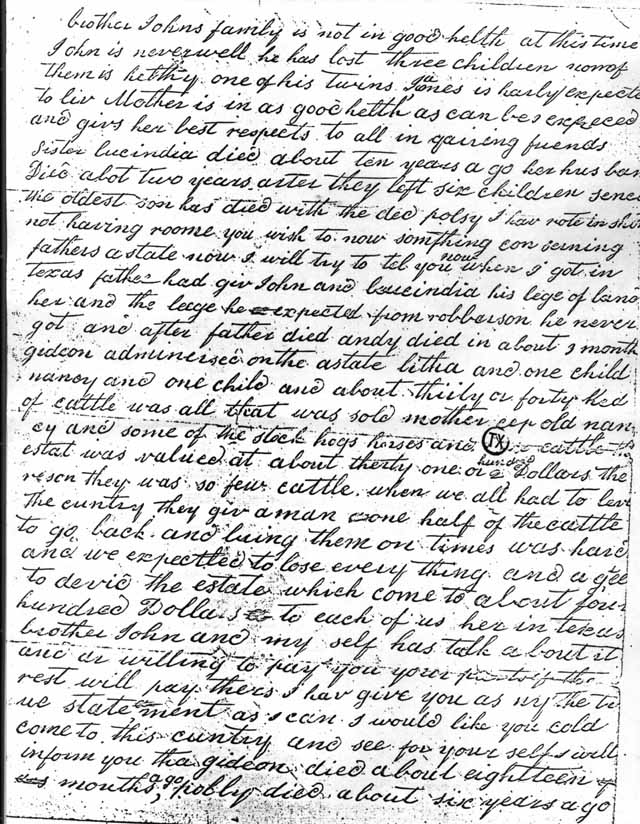 brother Johns family is not in good helth at this time
John is never well he has lost three children non of
them is helthy one of his twins Jones is harly expected
to liv Mother is in as good helth as can be expeced
and givs her best respects to all in qairing friends
Sister lucindia died about ten years a go her husban
Died abot two years after they left six children sence
the oldest son has died with the ded polsy I hav rote in short
not having roome you wish to now somthing con serning
fathers a state now I will try to tel you now when I got in
texas father had giv John and luceindia his lege of land
her and the leege he expected from robberson he never
got and after father died andy died in about 9 month
gideon admunersed on the astate litha and one child
nancy and one child and about thirty or forty hed
of cattle was all that was sold mother cep old nan
cy and some of the stock hogs horses and cattle the
TX
estat was valued at about therty one or 2 hundred Dollars the
reson they was so few cattle when we all had to lev
the cuntry they giv a man one half of the cattle
to go back and bring them on times was hard
and we expectted to lose every thing and a gee
to devid the estate which come to about four
hundred Dollars to each of us her in texas
brother John and my self has talk a bout it
and ar willing to pay you your part if the
rest will pay thers I hav give you as ny the tr
ue state ment as I can I would like you cold
come to this cuntry and see for your self I will
inform you tha gideon died about eighteen
months a go, pobly died about six years a go